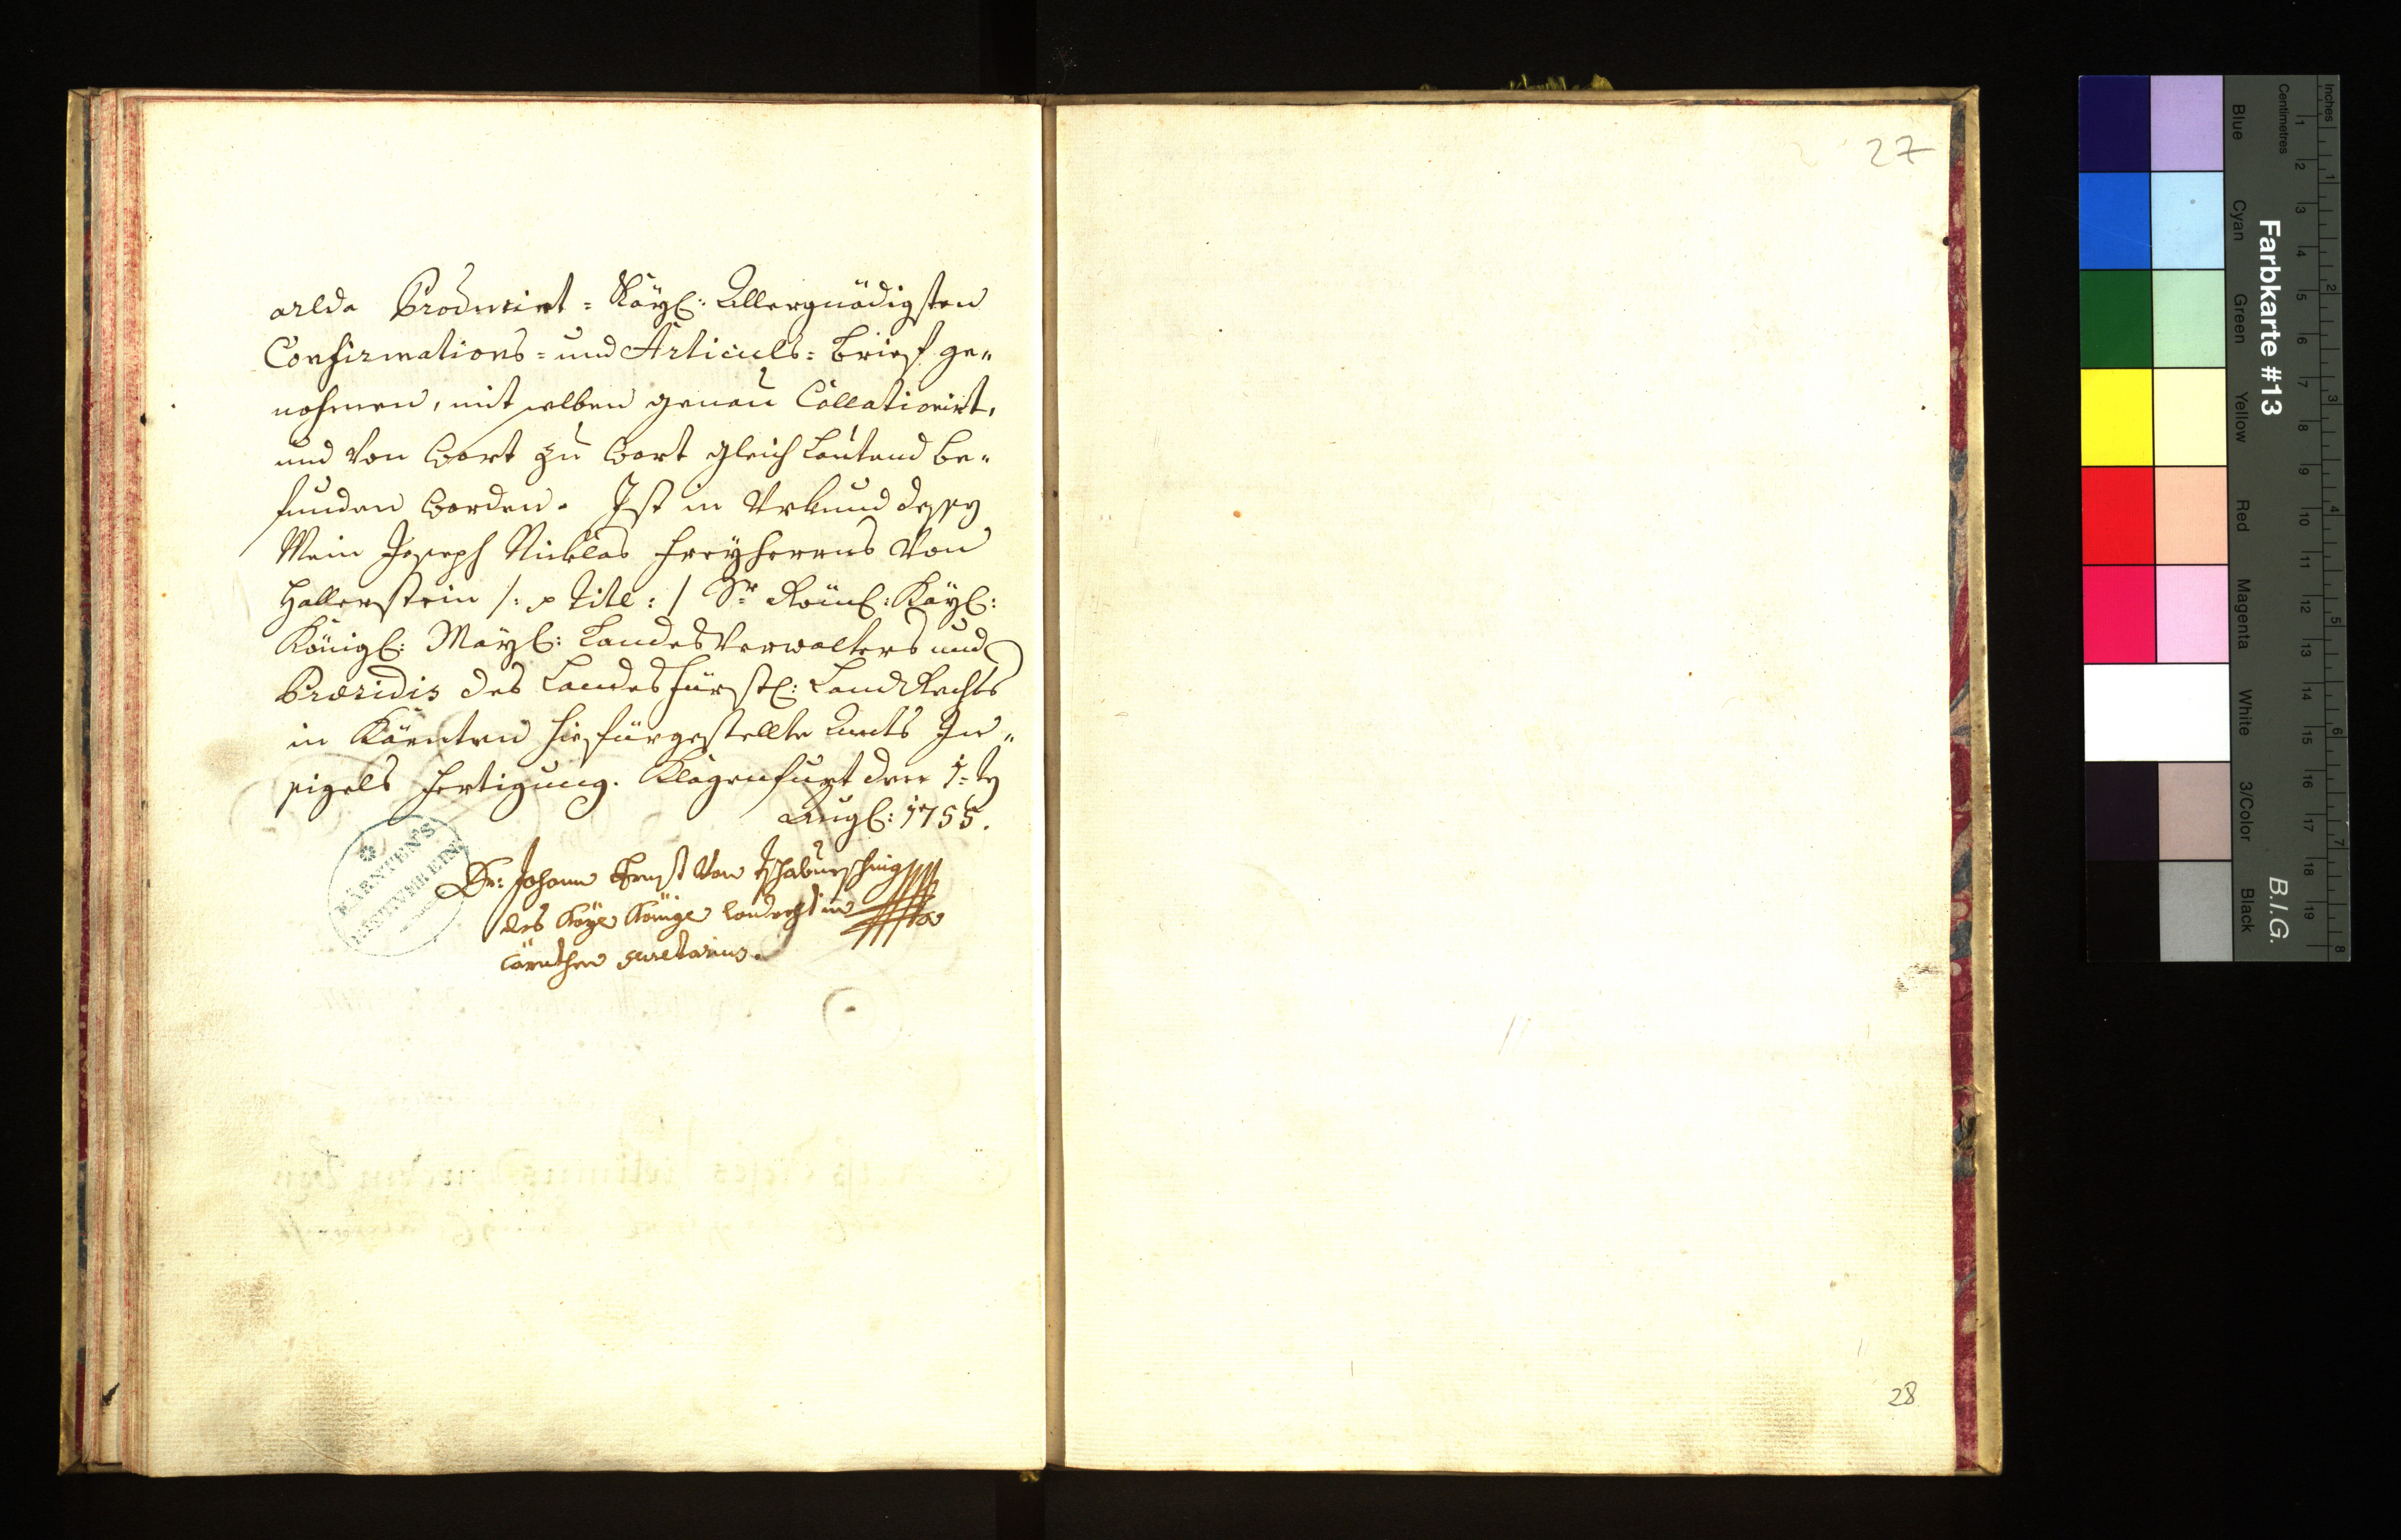 Producirt = Kayl: Allergnädigsten
Confirmations = und Articuls = brieff ge„
nohmen, mit selben genau Collationirt,
und von Wort zu Wort gleich lautend be„
funden worden. Ist in Urkund dessen
Mein Joseph Nicklas Freyherrns von
Hallerstein /: p Titl: / Sr Röml: Kayl:
Königl: Mayl: Landts Verwalters und
Præsidis des Landesfürstl: LandRechts
in Kärnten hiefürgestellte Amts In„
sigels Fertigung. Klagenfurt den 1: ten
Augl: 1755.
Dr: Johann Ernst von
des Kayl Königl Landrecht in
Cärnthen secretarius.
KÄRNTEN'S
GESCHICHTVEREIN
27
28
Inches
Centimetres
Farbkarte #13
B.I.G.
Blue
Cyan
Green
Yellow
Red
Magenta
White
3/Color
Black
1 2 3 4 5 6 7 8 9 10 11 12 13 14 15 16 17 18 19
1 2 3 4 5 6 7 8